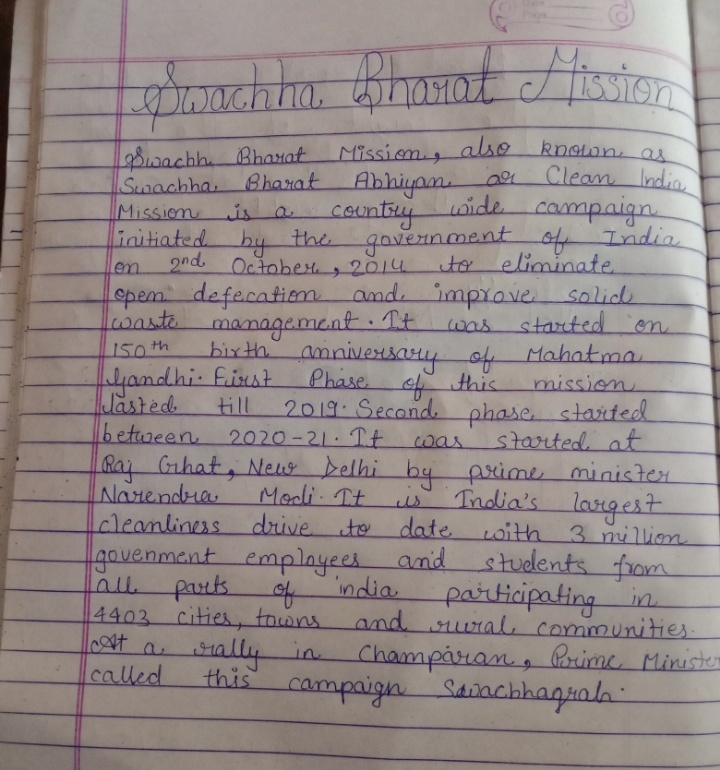 Swachha Bharat Mission
Swachh Bharat Mission, also known as
Swachha Bharat Abhiyan or Clean India
Mission is a country wide campaign
initiated by the government of India
on 2nd October, 2014 to eliminate
open defecation and improve solid
waste management. It was started on
150th birth anniversary of Mahatma
Gandhi. First Phase of this mission
lasted till 2019. Second phase started
between 2020-21. It was started at
Raj Ghat, New Delhi by prime minister
Narendra Modi. It is India's largest
cleanliness drive to date with 3 million
govenment employees and students from
all parts of india participating in
4403 cities, towns and rural communities.
At a rally in Champaran, Prime Minister
called this campaign Swachhagrah.